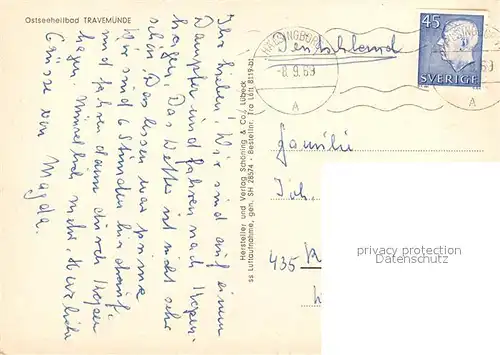 Ostseeheilbad TRAVEMÜNDE
Ihr Lieben! Wir sind auf einem
Dampfer und fahren nach Kopen-
hagen. Das Wetter ist nicht sehr
schön. Das Essen war prima
Wir sind 6 Stunden hier drauf.
und fahren dann durch Kopen
hagen. Mündlich mehr. Herzliche
Grüsse von Magda.
Hersteller und Verlag Schöning & Co., Lübeck
ss Luftaufnahme, gen. SH 28574 · Bestellnr. Tra Luft 8119
HÄLSINGBORG
-8.9.69
A
45
SVERIGE
69
A
Deutschland
Familie
Joh.
435
privacy protection
Datenschutz